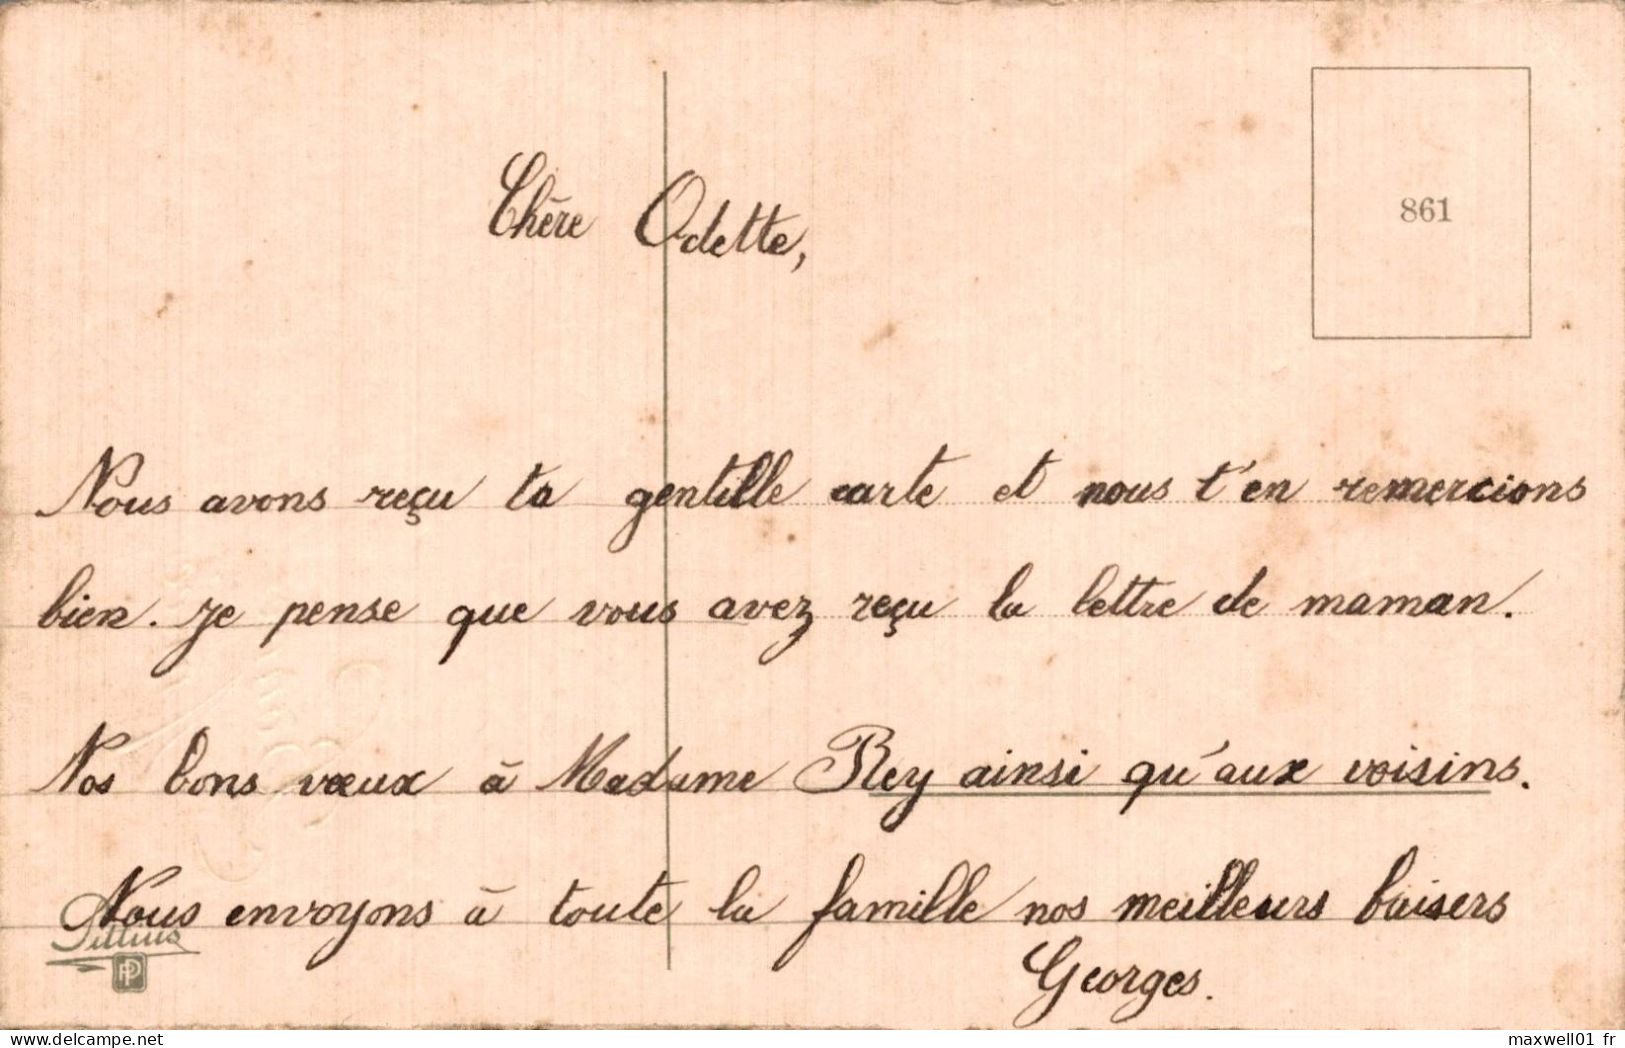 861
Chère Odette,
Nous avons reçu ta gentille carte et nous t'en remercions
bien. Je pense que vous avez reçu la lettre de maman.
Nos bons vœux à Madame Rey ainsi qu'aux voisins.
Nous envoyons à toute la famille nos meilleurs baisers
Georges.
delcampe.net
maxwell01 fr